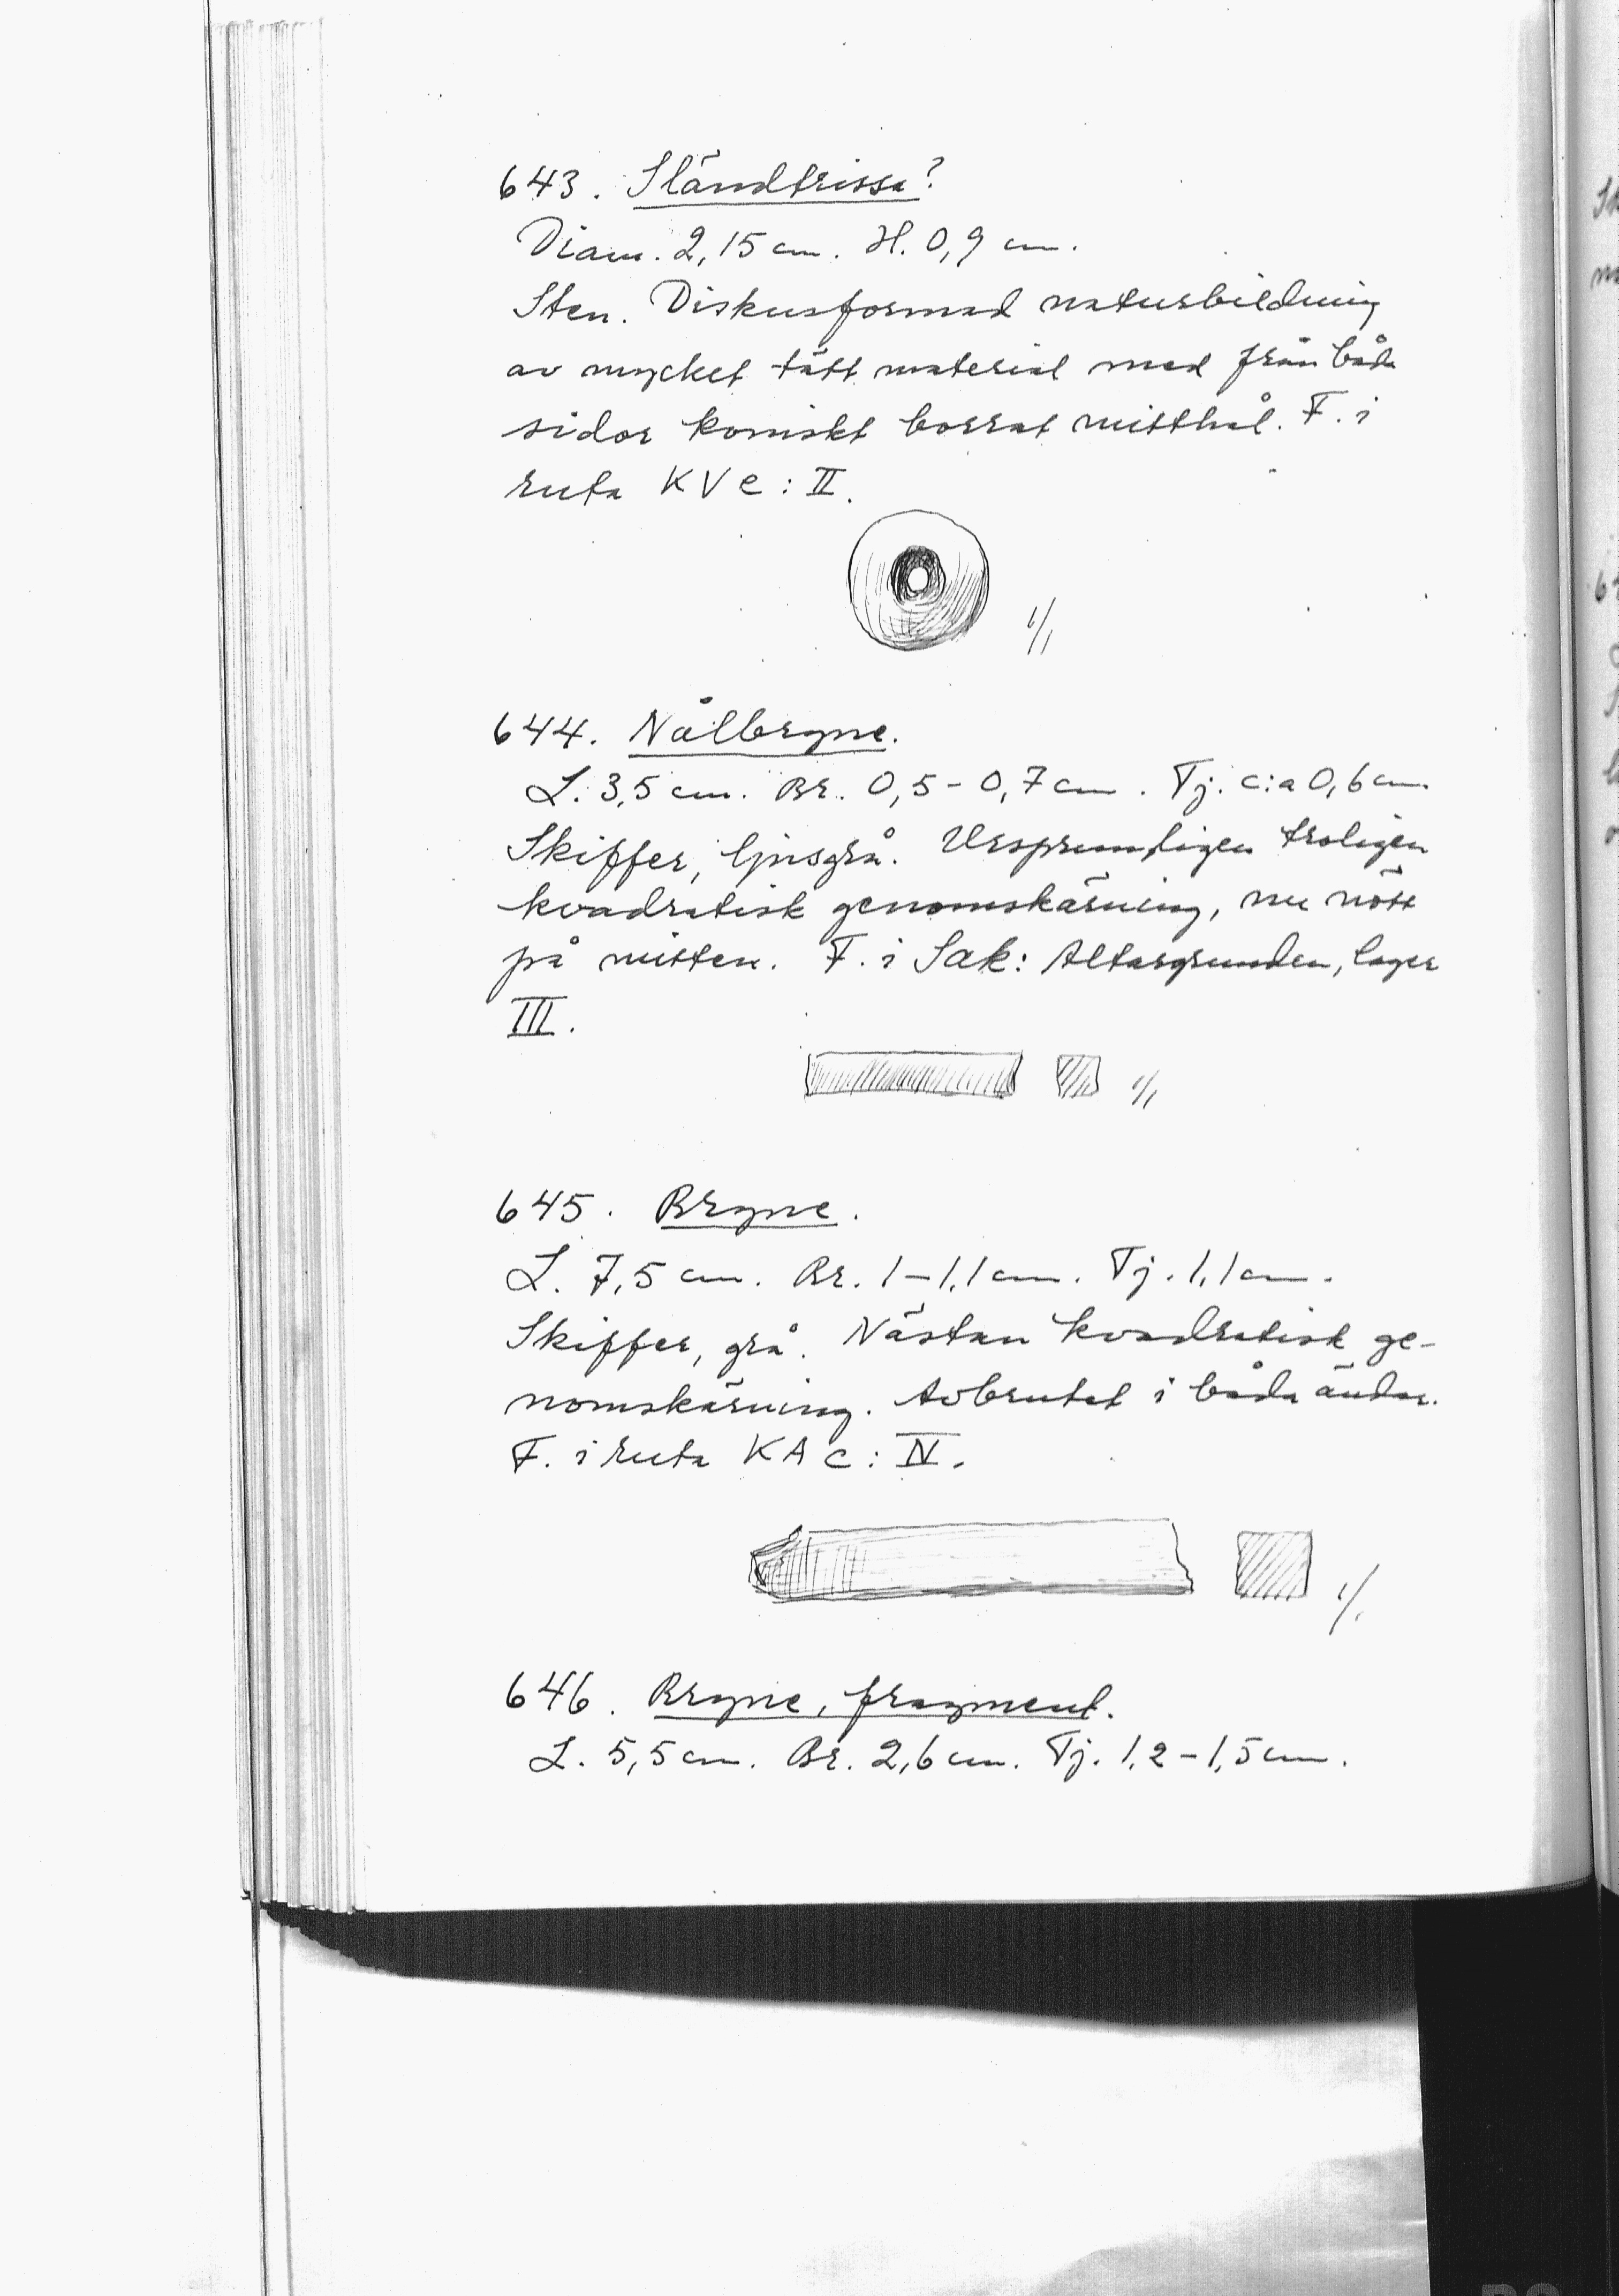 643. Sländtrissa?
Diam. 2,15 cm. H. 0,9 cm.
Sten. Diskusformad naturbildning
av mycket tätt material med från båda
sidor koniskt borrat mitthål. F. i
ruta KVe: II.
1/1
644. Nålbryne.
L. 3,5 cm. Br. 0,5-0,7 cm. Tj. c:a 0,6 cm.
Skiffer, ljusgrå. Ursprungligen troligen
kvadratisk genomskärning, nu nött
på mitten. F. i Sak: Altargrunden, lager
III.
1/1
645. Bryne.
L. 7,5 cm. Br. 1-1,1 cm. Tj. 1,1 cm.
Skiffer, grå. Nästan kvadratisk ge-
nomskärning. Avbrutet i båda ändar.
F. i ruta KAc: IV.
1/1
646. Bryne, fragment.
L. 5,5 cm. Br. 2,6 cm. Tj. 1,2-1,5 cm.